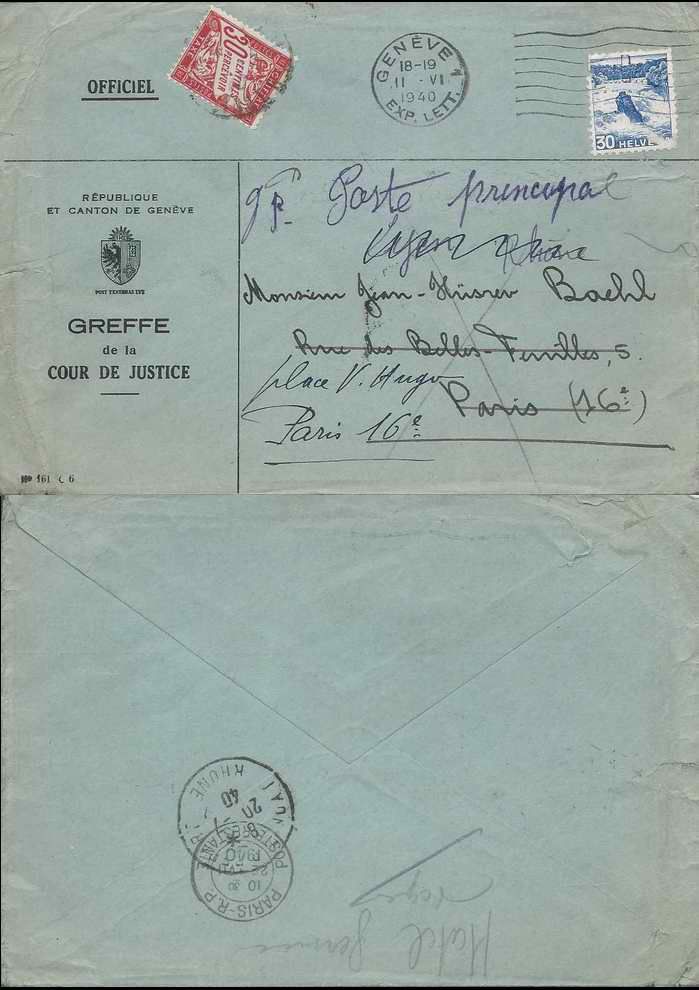 OFFICIEL
30
CENTIMES
A PERCEVOIR
GENÈVE 1
18-19
11 · VI
1940
EXP. LETT.
30 HELVE
RÉPUBLIQUE
ET CANTON DE GENÈVE
POST TENEBRAS LUX
GREFFE
de la
COUR DE JUSTICE
Nº 161 C 6
Poste principal
Lyon Rhône
Monsieur Jean-Hüsrev Baehl
Rue des Belles-Feuilles, 5.
place V. Hugo
Paris (16e)
Paris 16e
RHONE
20
40
POSTE RESTANTE
1940
10 30
PARIS-R.P.
Hotel